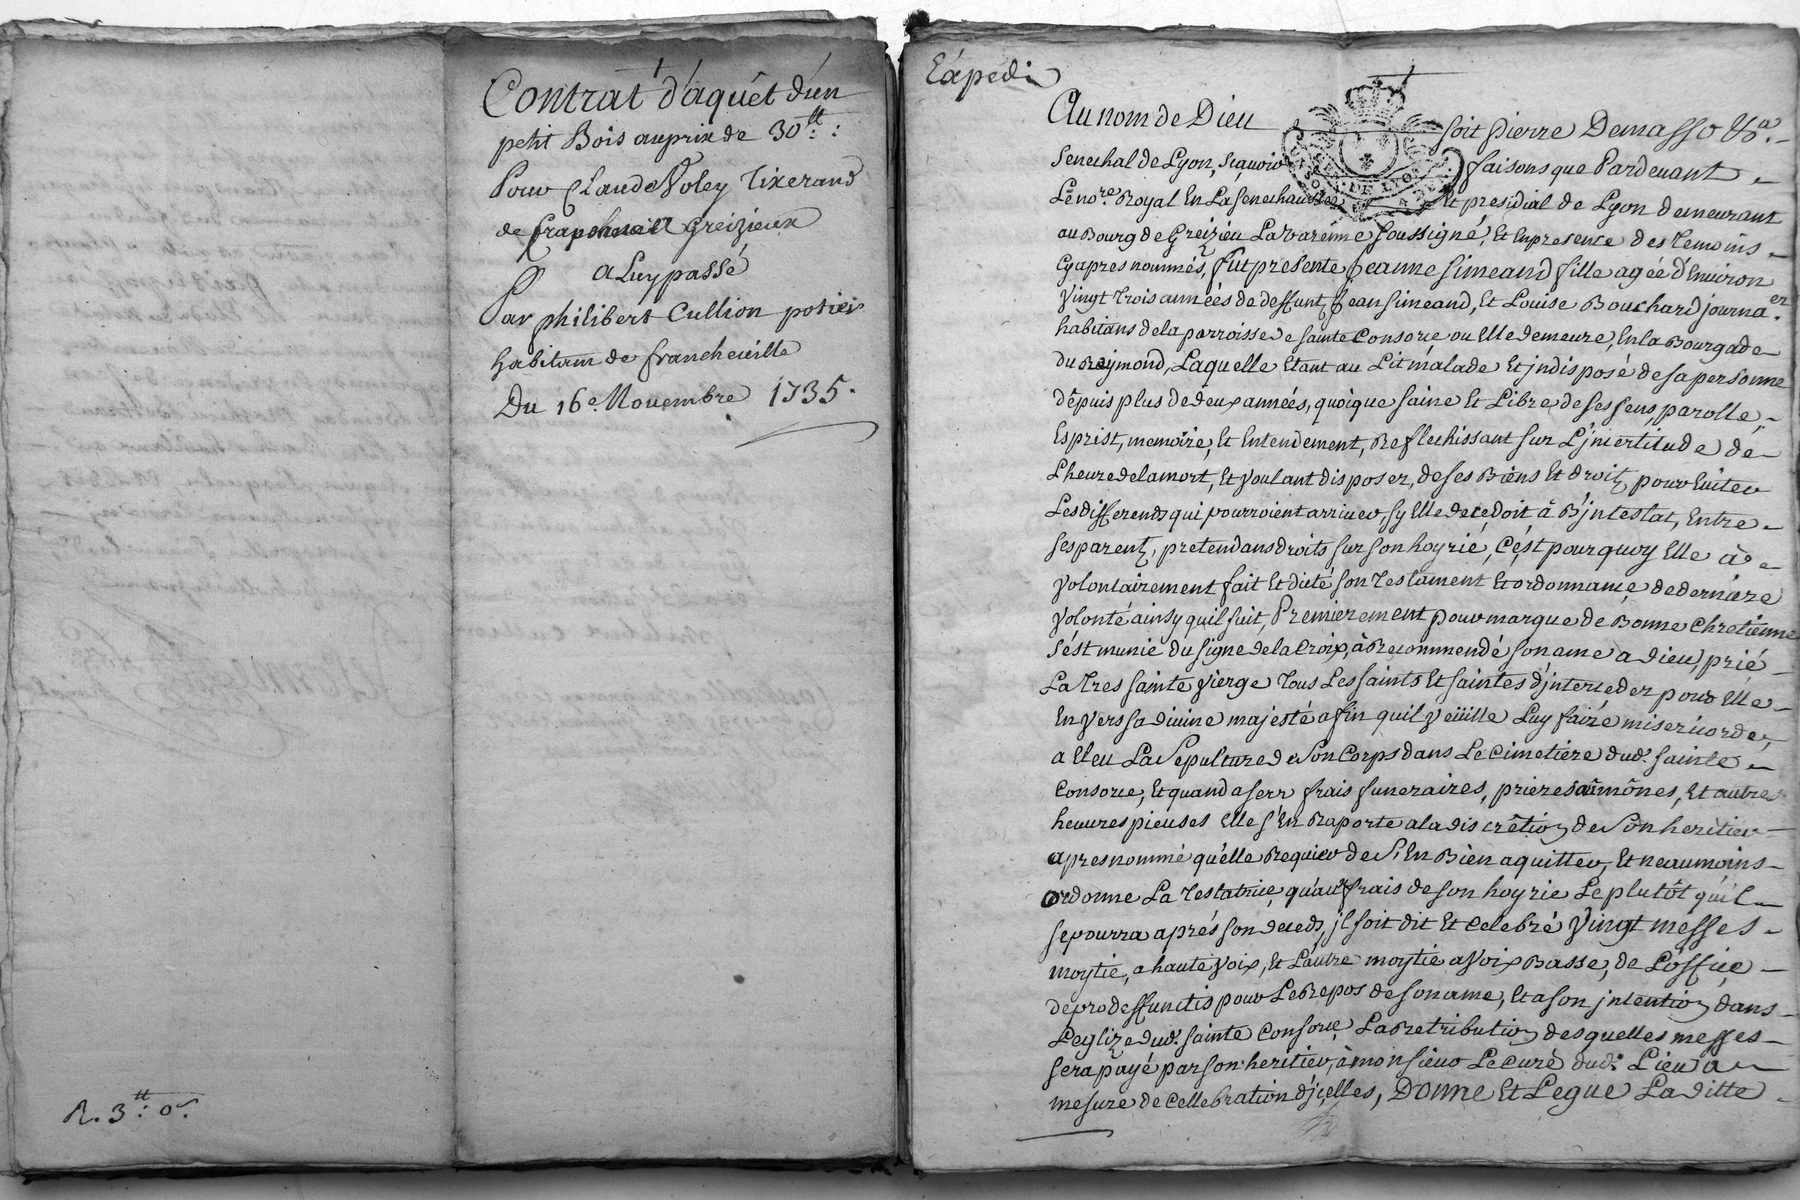 Contrat d'aquêt d'un
petit Bois au prix de 30tt :
Pour Claude Voley Tixerand
de Greizieux
a Luy passé
Par philibert Cullion potier
habitant de francheville
Du 16e. Novembre 1735.
R. 3tt: 0s.
Expedié
Au nom de Dieu soit Pierre Demasso
Senechal de Lyon, sçavoir faisons que Pardevant
Le nore. Royal En La Senechaussée et presidial de Lyon demeurant
au Bourg de Greizieu Lavarenne soussigné, Et En presence des temoins
Cy apres nommés, fut presente Jeanne Simeand fille agée d'Environ
Vingt trois années de deffunt Jean Simeand, Et Louise Bouchard journaer.
habitans de la parroisse de sainte Consorce ou Elle demeure, En la Bourgade
du Reymond, Laquelle Etant au Lit malade Et jndisposé de sa personne
dêpuis plus de deux années, quoique saine Et Libre de ses sens, parolle,
Esprist, memoire, Et Entendement, Reflechissant sur L'jncertitude de
L'heure de la mort, Et voulant disposer, de ses Biens Et droits pour Eviter
Les differends qui pourroient arriver sy Elle decedoit â B'jntestat, Entre
ses parents, pretendans droits sur son hoyrié, C'ést pourquoy Elle à
volontairement fait Et dicté son Testament Et ordonnance de derniere
volonté ainsy quil suit, Premierement pour marque de Bonne Chretienne
s'ést munie du signe de la Croix, à Recommendé son ame a dieu, prié
La tres sainte vierge tous Les saints Et saintes d'jnterceder pour Elle
En vers sa divine majesté afin quil veüille Luy faire misericorde,
a Eleu La Sepulture de son Corps dans Le Cimetiere dud. sainte
Consorce, Et quand a ses frais funeraires, prieres aumônes, Et autres
heuvres pieuses Elle s'En Raporte a la discrêtion de son heritier
apres nommé qu'elle Requier de s'En Bien aquitter, Et neaumoins
ordonne La Testatrice, qu'aux frais de son hoyrie Le plutôt qu'il
se pourra aprés son deceds, jl soit dit Et Celebré Vingt messes
moytié, a haute voix, Et L'autre moytié a voix Basse, de L'office
de pro deffunctis pour Le Repos de son ame, Et a son jntention dans
L'eglize dud. sainte Consorce La Retribution desquelles messes
sera payé par son heritier, à monsieur Le Curé dud. Lieu a
mesure de Cellebration d'jcelles, Donne Et Legue La ditte